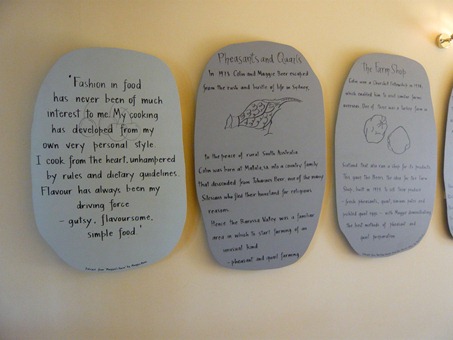 'Fashion in food
has never been of much
interest to me. My cooking
has developed from my
own very personal style.
I cook from the heart, unhampered
by rules and dietary guidelines.
Flavour has always been my
driving force
- gutsy, flavoursome,
simple food.'
Pheasants and Quails
In 1973 Colin and Maggie Beer escaped
from the rush and bustle of life in Sydney,
to the peace of rural South Australia.
Colin was born at Mallala, SA into a country family
that descended from Johannes Beer, one of the many
Silesians who fled their homeland for religious
reasons.
Hence the Barossa Valley was a familiar
area in which to start farming of an
unusual kind
- pheasant and quail farming
The Farm Shop
Colin won a Churchill Fellowship in 1978,
which enabled him to visit similar farms
overseas. One of these was a turkey farm in
Scotland that also ran a shop for its products.
This gave the Beers the idea for the Farm
Shop, built in 1979 to sell their produce
- fresh pheasants, quail, and
pickled quail eggs - with Maggie demonstrating
the best methods of pheasant and
quail preparation.